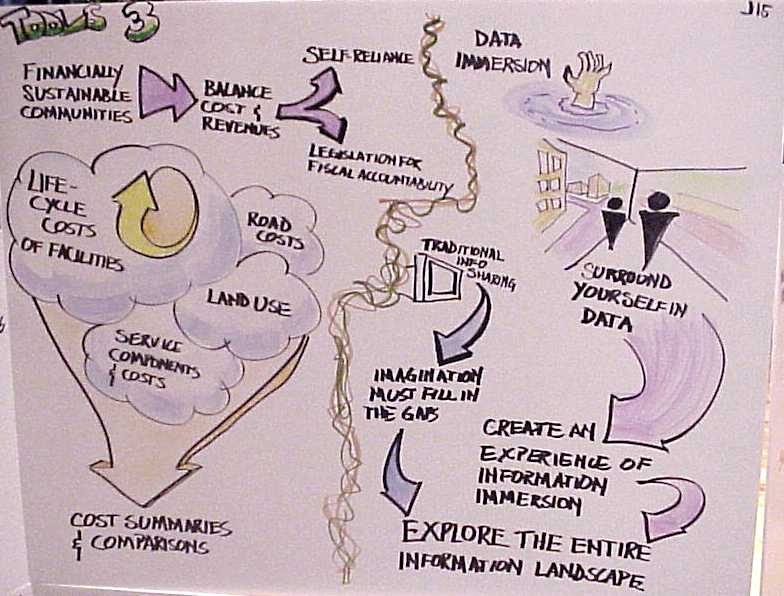 TOOLS 3
J15
FINANCIALLY
SUSTAINABLE
COMMUNITIES
BALANCE
COST &
REVENUES
SELF-RELIANCE
LEGISLATION FOR
FISCAL ACCOUNTABILITY
LIFE-
CYCLE
COSTS
OF FACILITIES
ROAD
COSTS
LAND USE
SERVICE
COMPONENTS
& COSTS
COST SUMMARIES
& COMPARISONS
DATA
IMMERSION
TRADITIONAL
INFO
SHARING
IMAGINATION
MUST FILL IN
THE GAPS
SURROUND
YOURSELF IN
DATA
CREATE AN
EXPERIENCE OF
INFORMATION
IMMERSION
EXPLORE THE ENTIRE
INFORMATION LANDSCAPE